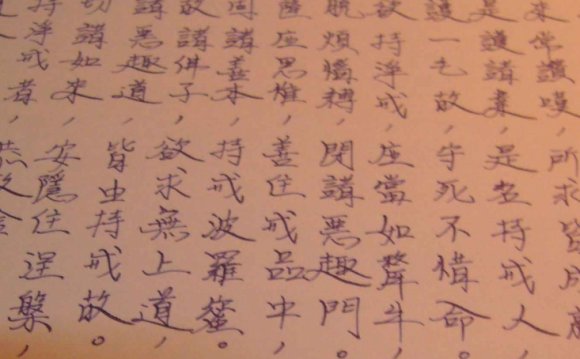 來常讚嘆,所求皆成
是護諸業,是名持戒人,
護一毛故,守死不惜命。
欲持淨戒,應當如犛牛,
脫煩惱縛,閉諸惡趣門。
薩應思惟,善住戒品中,
固諸善本,持戒波羅蜜。
故諸佛子,欲求無上道,
諸惡趣道,皆由持戒故。
切諸如來,安隱住涅槃,
持淨戒者,恭敬